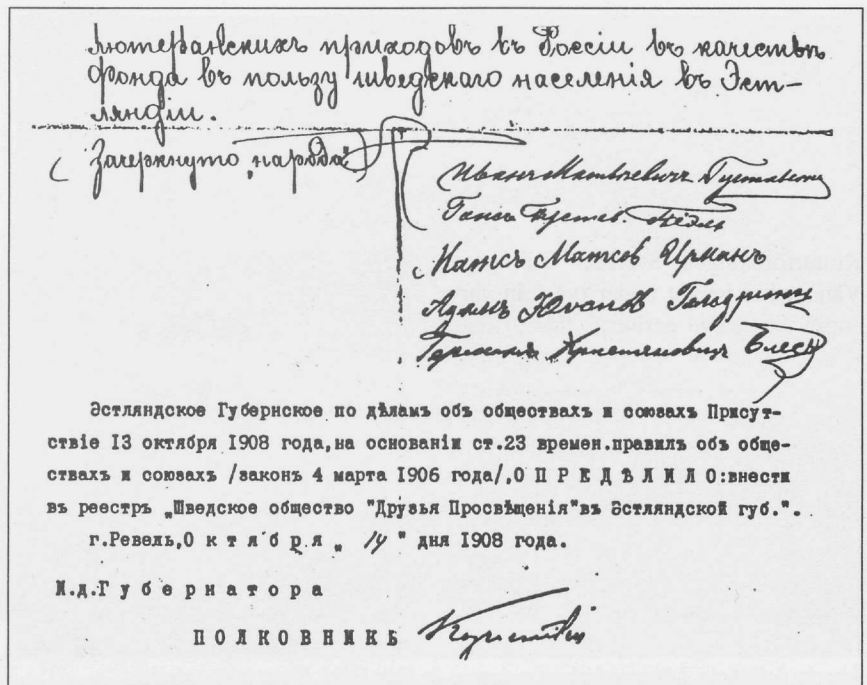 лютеранскихъ приходовъ въ Россіи въ качествѣ
фонда въ пользу шведскаго населенія въ Эст-
ляндіи.
(Зачеркнуто „народа“)
Иванъ Матвѣевичъ
Гансъ
Матсъ Матсов
Юванов
Христяновичъ
Эстляндское Губернское по дѣламъ объ обществахъ и союзахъ Присут-
ствіе 13 октября 1908 года,на основаніи ст.23 времен.правилъ объ обще-
ствахъ и союзахъ /законъ 4 марта 1906 года/,О П Р Е Д Ѣ Л И Л О:внести
въ реестръ „Шведское общество "Друзья Просвѣщенія"въ Эстляндской губ.".
г.Ревель,О к т я б р я „ 14 " дня 1908 года.
И.д.Г у б е р н а т о р а
П О Л К О В Н И К Ь